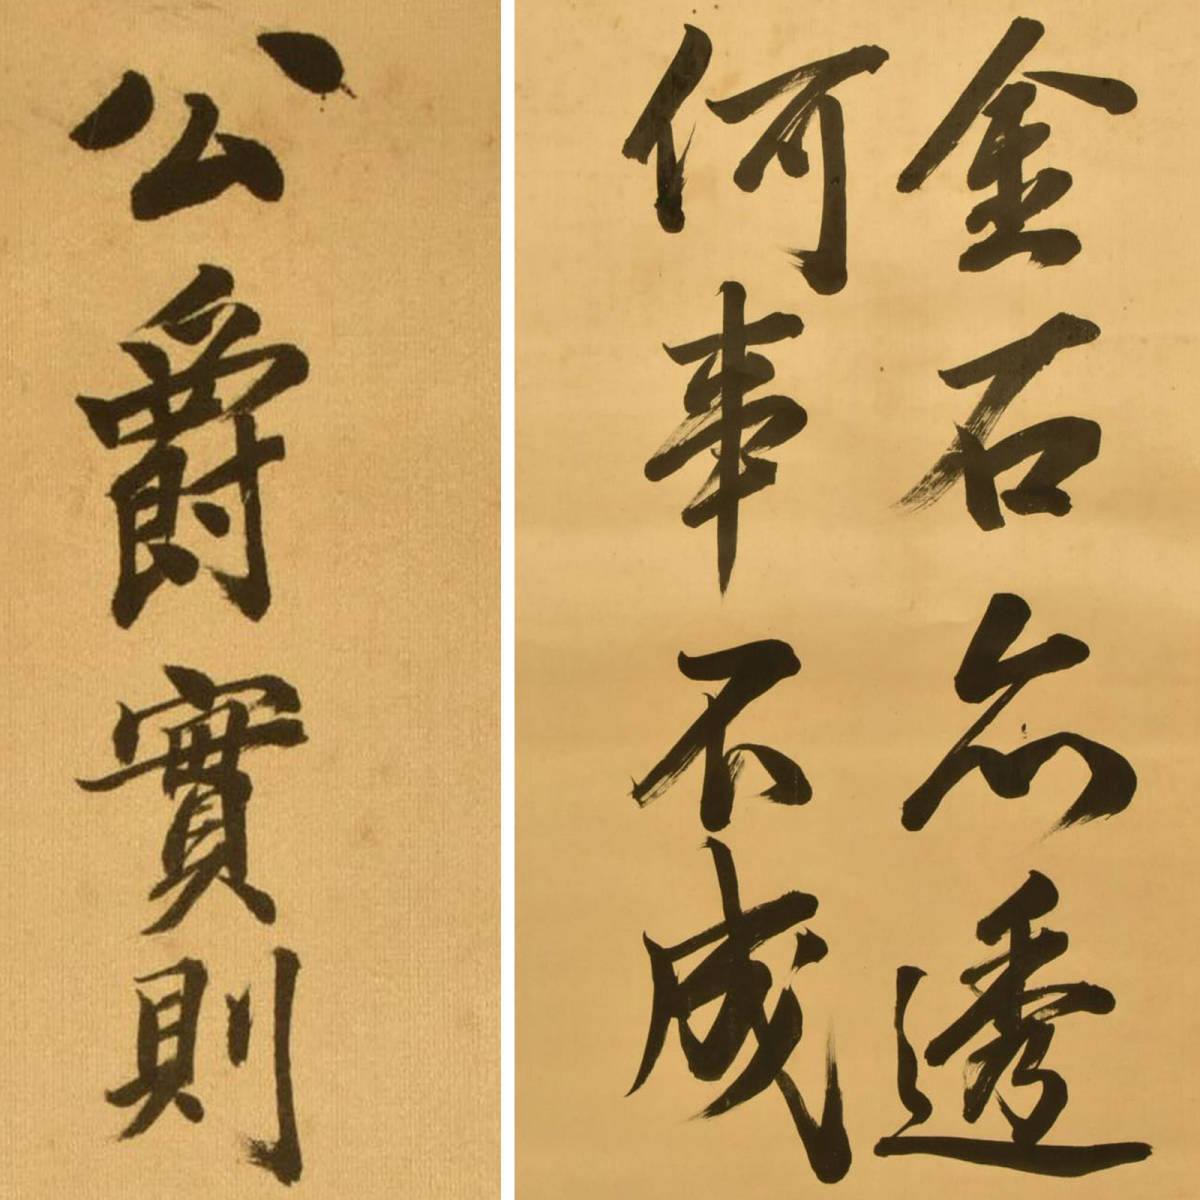 公爵實則
金石亦透
何事不成